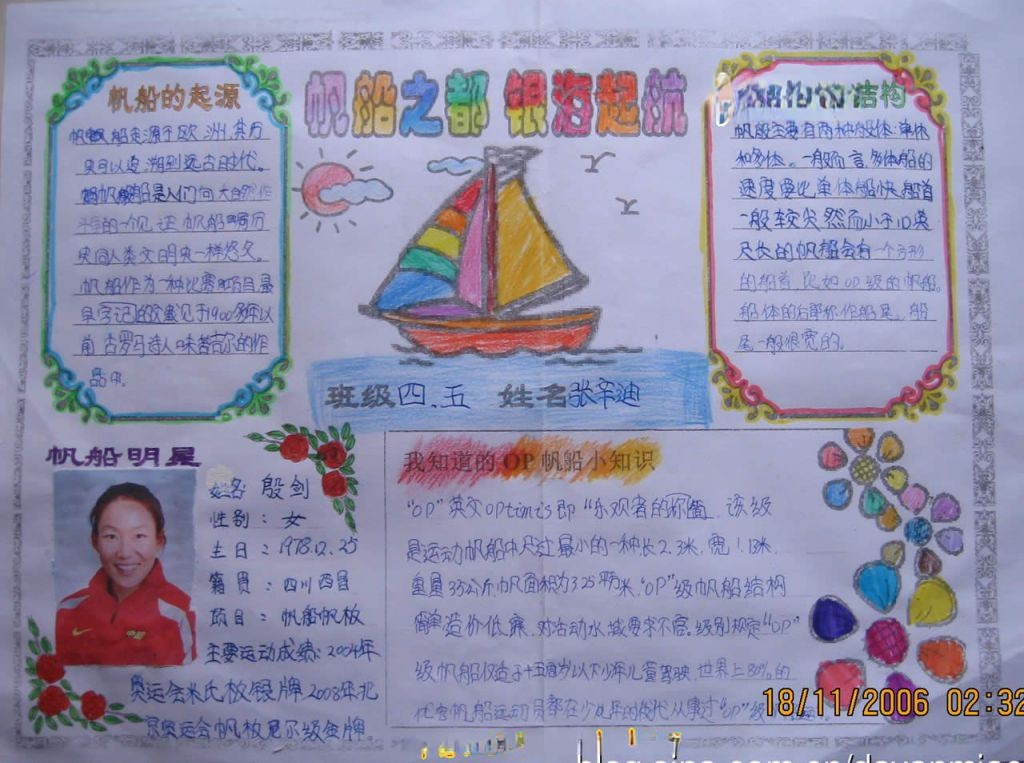 帆船之都 银海起航
帆船的起源
帆船起源于欧洲,其历
史可以追溯到远古时代。
帆船是人们向大自然作
斗争的一个见证,帆船历
史同人类文明史一样悠久。
帆船作为一种比赛项目,最
早的文献见于1900多年以
前古罗马诗人味吉尔的作
品中。
结构
帆船主要有两种船体:单体
和多体。一般而言,多体船的
速度要比单体船快,船首
一般较尖,然而小于10英
尺长的帆船会有一个方形
的船首,比如OP级的帆船。
船体的后部称作船尾。船
尾一般很宽的。
班级四、五 姓名张辛迪
帆船明星
姓名 殷剑
性别:女
生日:1978.12.25
籍贯:四川西昌
项目:帆船帆板
主要运动成绩:2004年
奥运会米氏板银牌2008年北
京奥运会帆板尼尔级金牌
我知道的OP帆船小知识
"OP"英文OPtimis即"乐观者的 该级
是运动帆船中尺过最小的一种长2.3米,宽1.13米,
重量35公斤帆面积为3.25平方米,"OP"级帆船结构
简单造价低廉,对活动水域要求不高.级别规定"OP"
级帆船仅适于十五岁以下少年儿童驾驶,世界上80%的
优秀帆船运动员都在少年时代从事过"OP"级
18/11/2006 02:32